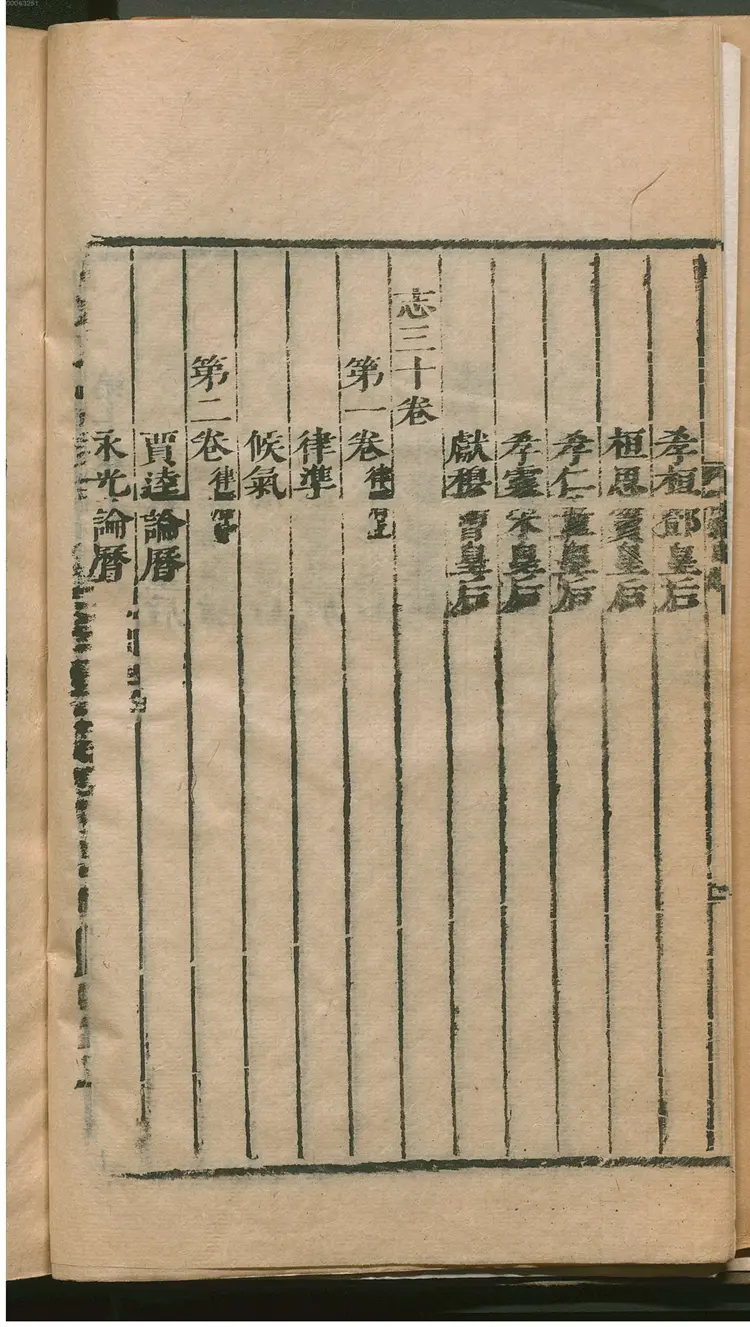 孝桓鄧皇后
桓思竇皇后
孝仁董皇后
孝靈宋皇后
獻穆曹皇后
志三十卷
第一卷律曆上
律準
候氣
第二卷律曆中
賈逵論曆
永光論曆